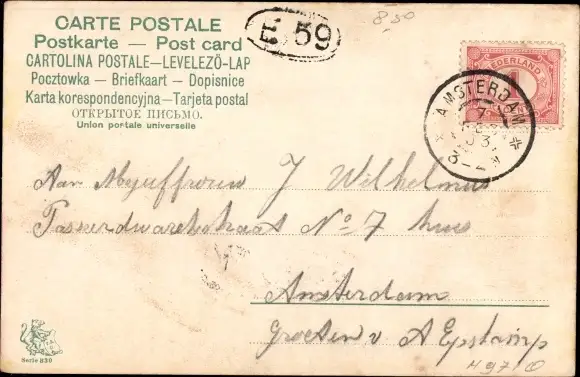 CARTE POSTALE
Postkarte — Post card
CARTOLINA POSTALE—LEVELEZÖ-LAP
Pocztowka — Briefkaart — Dopisnice
Karta korespondencyjna—Tarjeta postal
ОТКРЫТОЕ ПИСЬМО.
Union postale universelle
59
8 50
NEDERLAND
AMSTERDAM
Aan Mejuffrouw J Wilhelmus
No 7 huis
Amsterdam
Groeten v A Epskamp
Serie 830